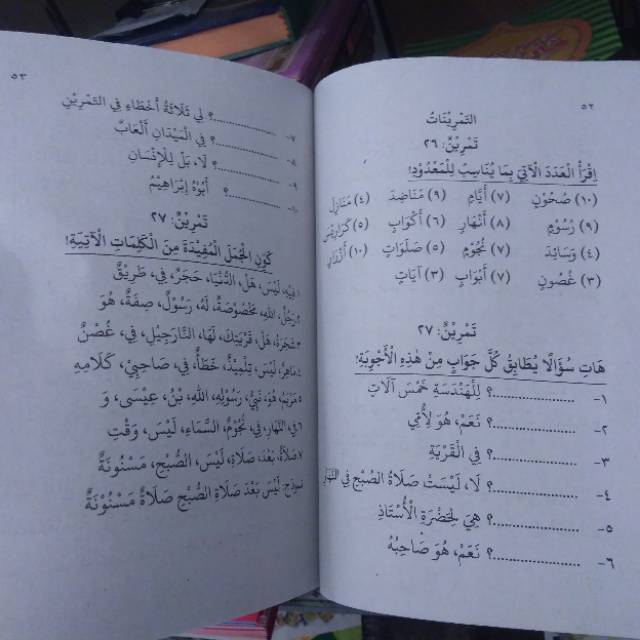 ٥٢
التَمْرِيْنَات
تَمْرِيْنٌ: ٢٦
اِقْرَأِ الْعَدَدَ الْآتِيَ بِمَا يُنَاسِبُ لِلْمَعْدُوْدِ!
(١٠) صَحُوْنٍ (٧) أَيَّامٍ (٩) مَنَاضِدَ (٤) مَنَازِلَ
(٩) رُسُوْمٍ (٨) أَنْهَارٍ (٦) أَكْوَابٍ (٥) كَرَارِيْسَ
(٤) وَسَائِدَ (٧) نُجُوْمٍ (٥) صَلَوَاتٍ (١٠)
(٣) غُصُوْنٍ (٧) أَبْوَابٍ (٣) آيَاتٍ
تَمْرِيْنٌ: ٢٧
هَاتِ سُؤَالًا يُطَابِقُ كُلَّ جَوَابٍ مِنْ هٰذِهِ الْأَجْوِبَةِ!
١- ....................؟ لِلْهَنْدَسَةِ خَمْسُ آلَاتٍ
٢- ....................؟ نَعَمْ، هُوَ لِأُمِّي
٣- ....................؟ فِي الْقَرْيَةِ
٤- ....................؟ لَا، لَيْسَتْ صَلَاةُ الصُّبْحِ فِي النَّهَارِ
٥- ....................؟ هِيَ لِحَضْرَةِ الْأُسْتَاذِ
٦- ....................؟ نَعَمْ، هُوَ صَاحِبُهُ
٥٣
٧- ....................؟ لِي ثَلَاثَةُ أَخْطَاءٍ فِي التَمْرِيْنِ
٨- ....................؟ فِي الْمَيْدَانِ أَلْعَابٌ
٩- ....................؟ لَا، بَلْ لِلْإِنْسَانِ
١٠- ....................؟ أَبُوْهُ إِبْرَاهِيْمُ
تَمْرِيْنٌ: ٢٧
كَوِّنِ الْجُمَلَ الْمُفِيْدَةَ مِنَ الْكَلِمَاتِ الْآتِيَةِ!
لَيْسَ، هَلْ، الدُّنْيَا، حَجَرٌ، فِي، طَرِيْقٌ
اللهِ، مَخْصُوْصَةٌ، لَهُ، رَسُوْلُ، صِفَةٌ، هُوَ
شَجَرَةٌ، هَلْ، قَرْيَتِكَ، لَهَا، النَّارَجِيْلِ، فِي، غُصْنٌ
لَيْسَ، تِلْمِيْذٌ، خَطَأٌ، فِي، صَاحِبِيْ، كَلَامِهِ
مَرْيَمُ، هُوَ، نَبِيُّ، رَسُوْلُهُ، اللهِ، بْنُ، عِيْسَى، وَ
النَّهَارِ، فِي، نُجُوْمٌ، السَّمَاءِ، لَيْسَ، وَقْتِ
صَلَاةٌ، بَعْدَ، صَلَاةِ، لَيْسَ، الصُّبْحِ، مَسْنُوْنَةٌ
نموذج: لَيْسَ بَعْدَ صَلَاةِ الصُّبْحِ صَلَاةٌ مَسْنُوْنَةٌ